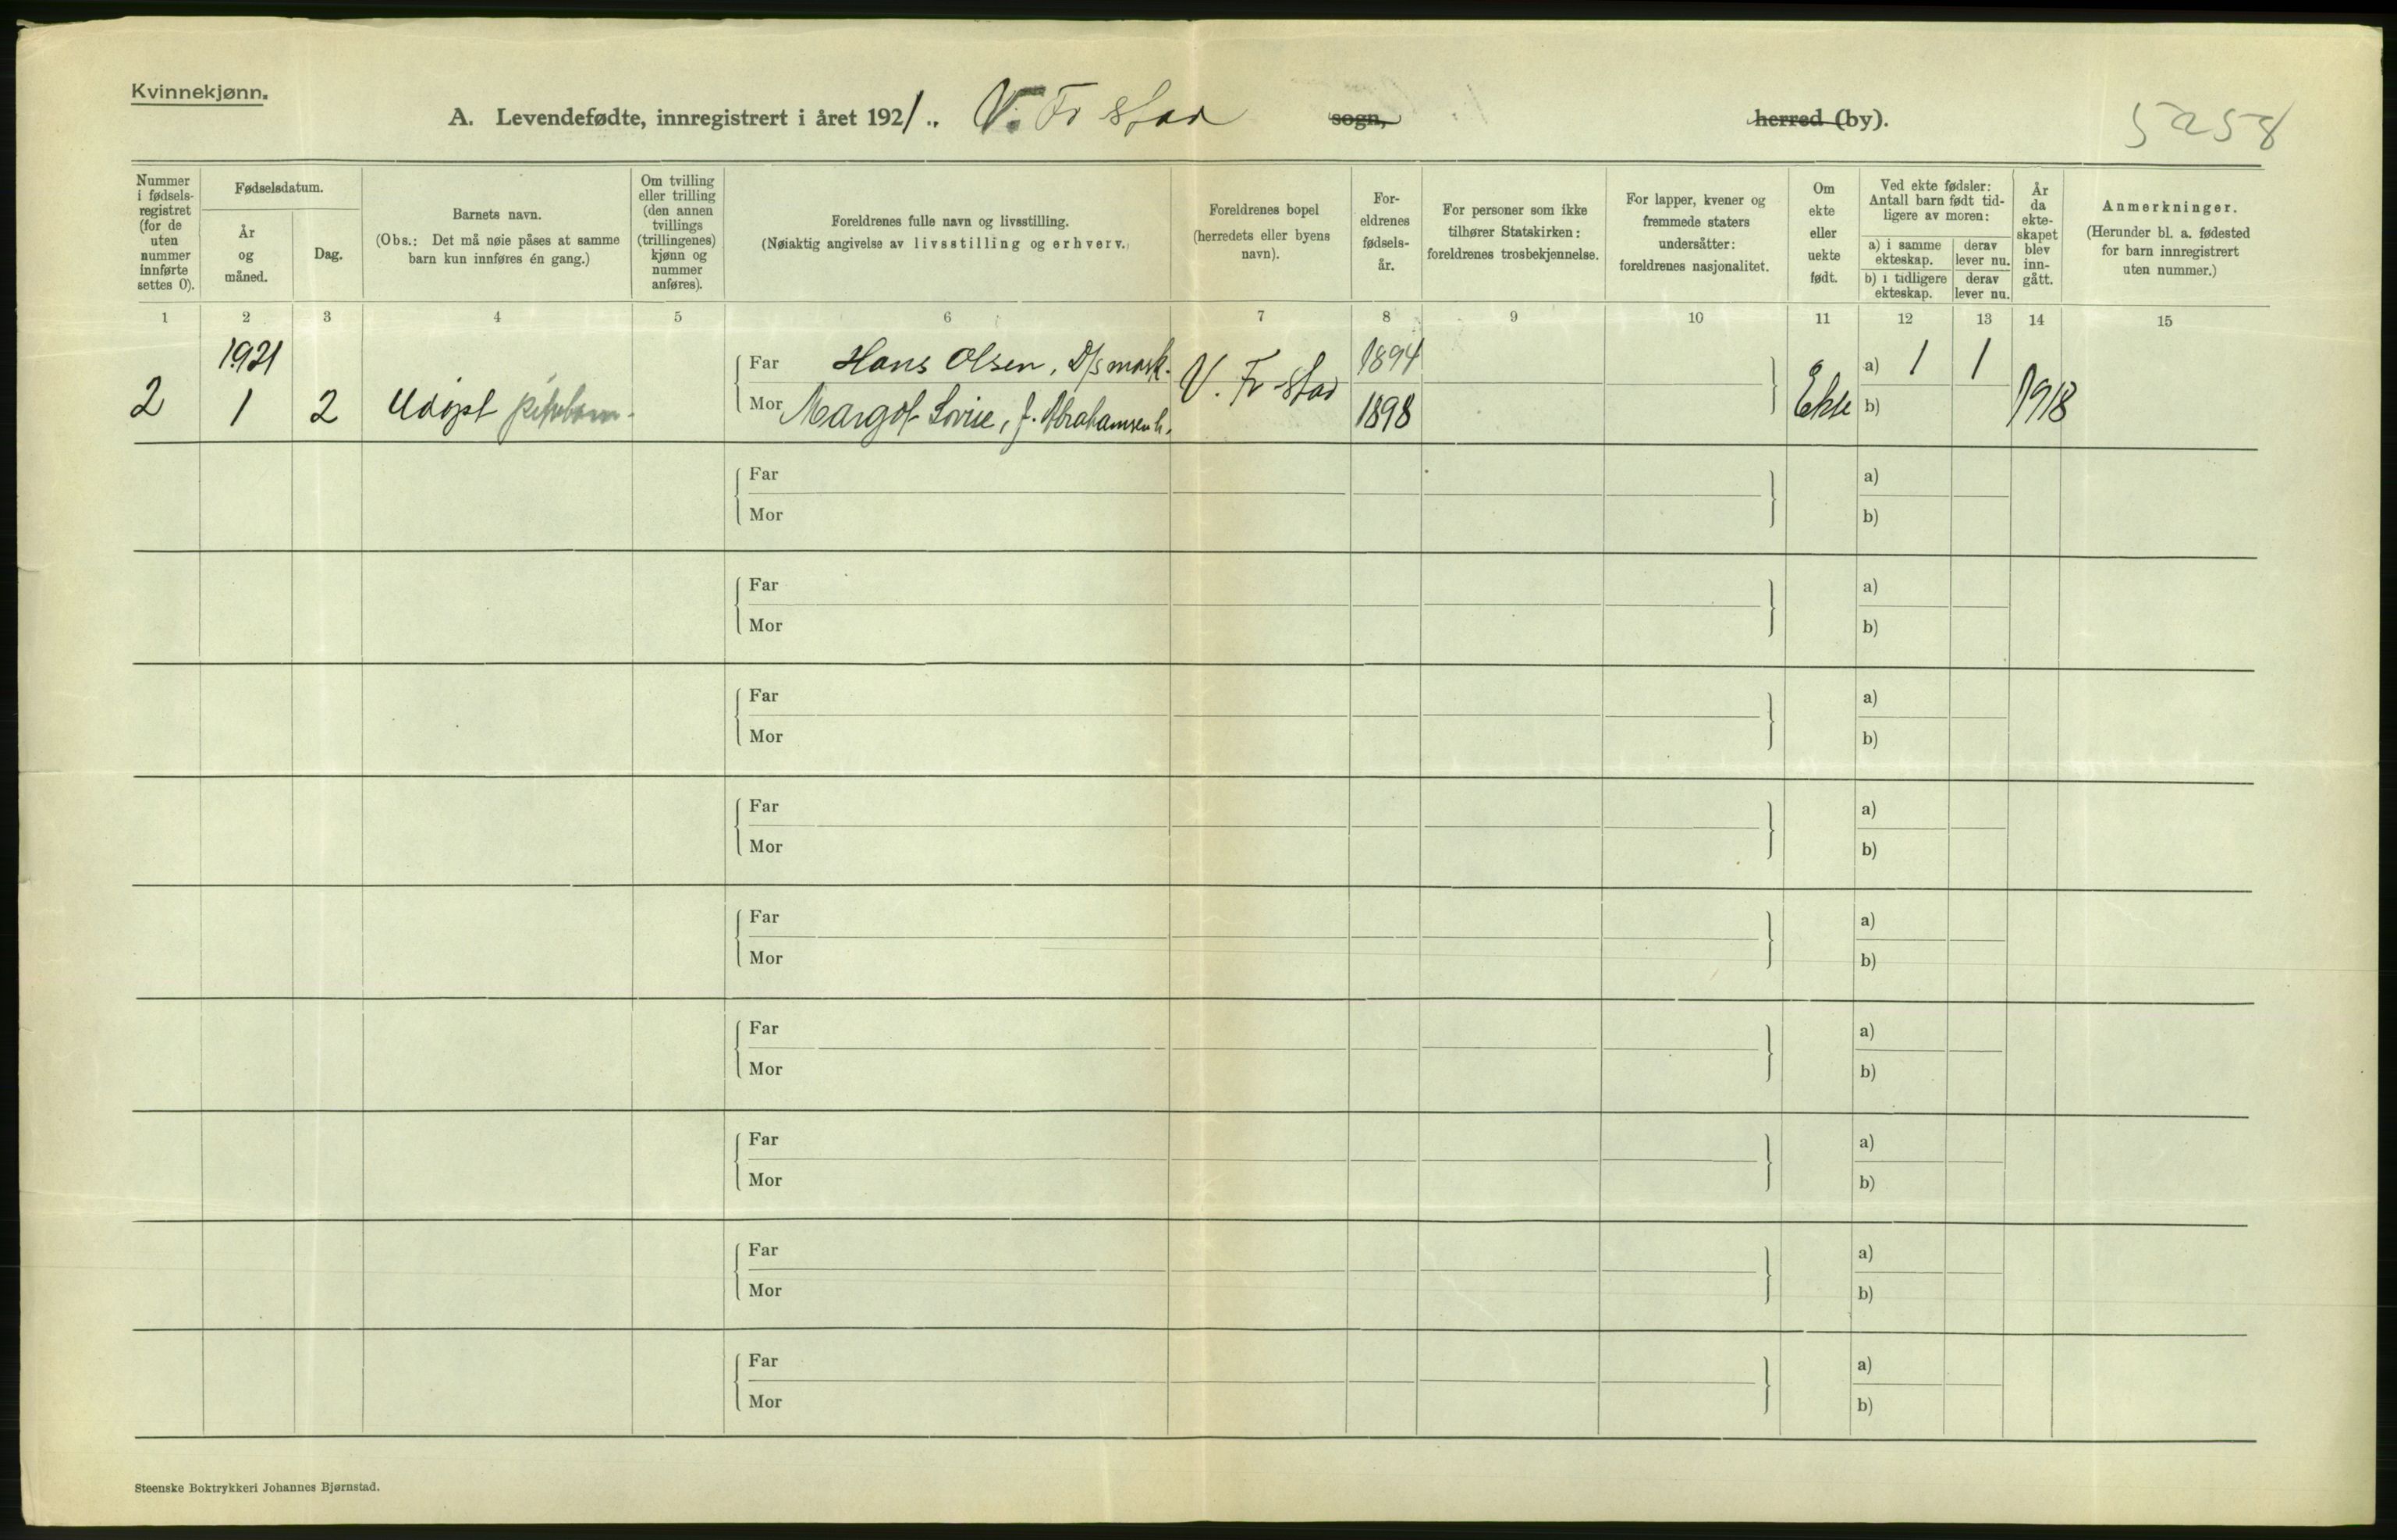 Kvinnekjønn.
A. Levendefødte, innregistrert i året 1921. V. Fr stad sogn, herred (by). 5258
Nummer i fødsels-registret (for de uten nummer innførte settes 0).
Fødselsdatum.
År og måned.
Dag.
Barnets navn.
(Obs.: Det må nøie påses at samme barn kun innføres én gang.)
Om tvilling eller trilling (den annen tvillings (trillingenes) kjønn og nummer anføres).
Foreldrenes fulle navn og livsstilling.
(Nøiaktig angivelse av livsstilling og erhverv.)
Foreldrenes bopel (herredets eller byens navn).
For-eldrenes fødsels-år.
For personer som ikke tilhører Statskirken: foreldrenes trosbekjennelse.
For lapper, kvener og fremmede staters undersåtter: foreldrenes nasjonalitet.
Om ekte eller uekte født.
Ved ekte fødsler: Antall barn født tid-ligere av moren:
a) i samme ekteskap.
derav lever nu.
b) i tidligere ekteskap.
derav lever nu.
År da ekte-skapet blev inn-gått.
Anmerkninger.
(Herunder bl. a. fødested for barn innregistrert uten nummer.)
1 2 3 4 5 6 7 8 9 10 11 12 13 14 15
1921
Far Hans Olsen, D/s mask. V. Fr stad 1894 a) 1 1
2 1 2 Udøpt pikebarn Mor Margot Lovise, f. Abrahamsen h. 1898 Ekte b) 1918
Far a)
Mor b)
Far a)
Mor b)
Far a)
Mor b)
Far a)
Mor b)
Far a)
Mor b)
Far a)
Mor b)
Far a)
Mor b)
Far a)
Mor b)
Far a)
Mor b)
Steenske Boktrykkeri Johannes Bjørnstad.